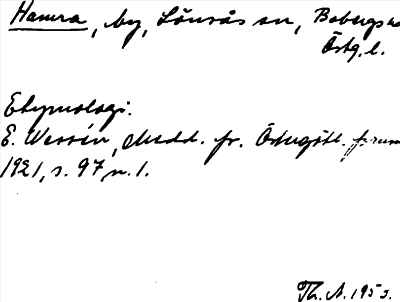 Hamra, by, Lönsås sn, Bobergs
Östg. l.
Etymologi:
E. Wessén, Medd. fr. Östergötl.
1921, s. 97 n. 1.
Th. A. 195